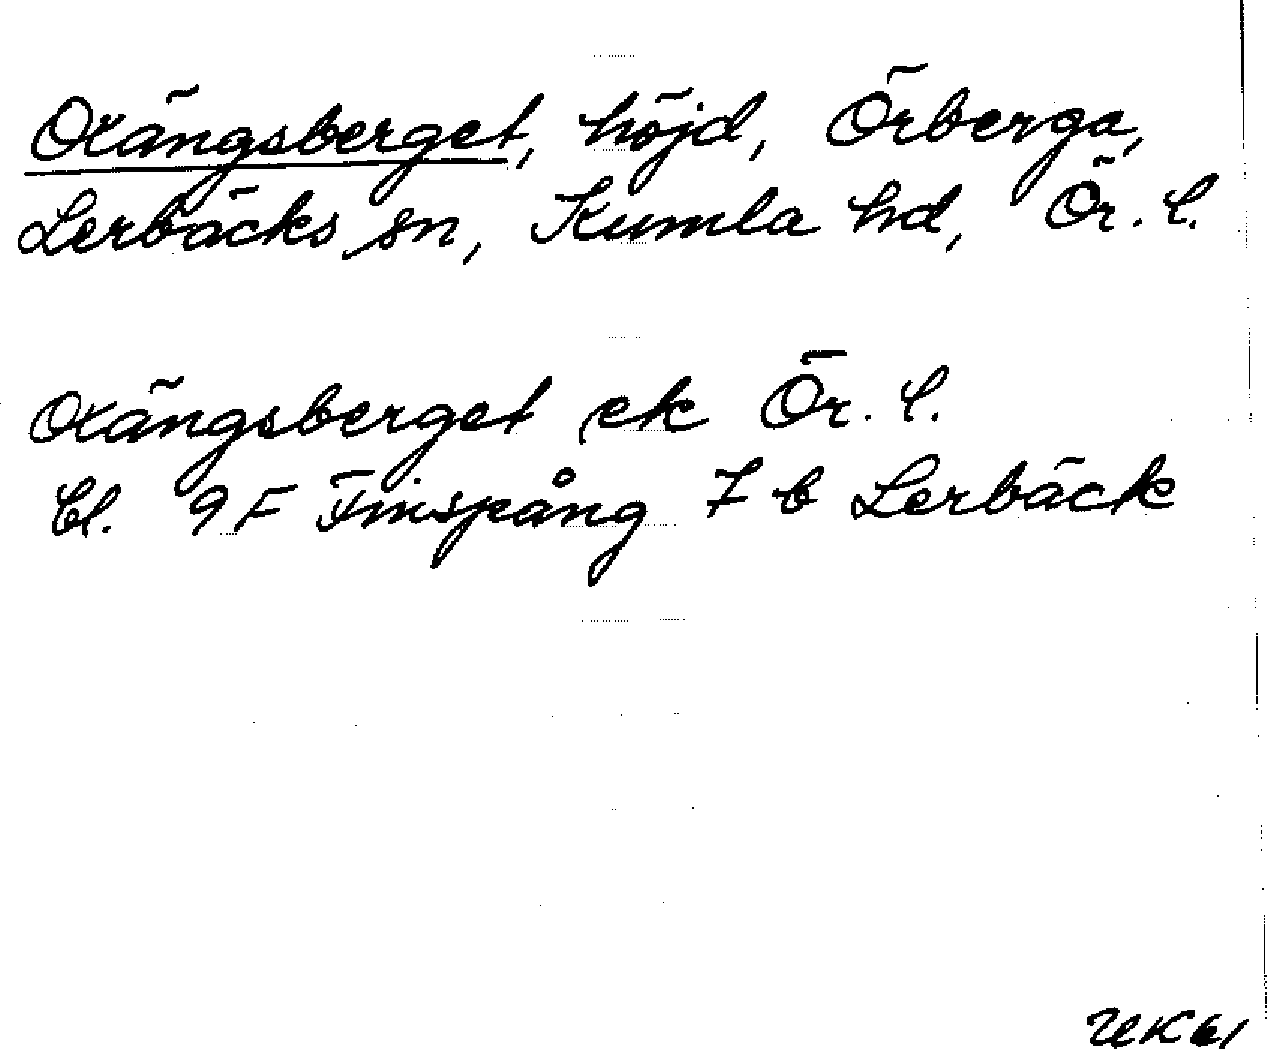 Oxängsberget, höjd, Örberga,
Lerbäcks sn, Kumla hd, Ör. l.
Oxängsberget ek Ör. l.
bl. 9F Finspång 7 b Lerbäck